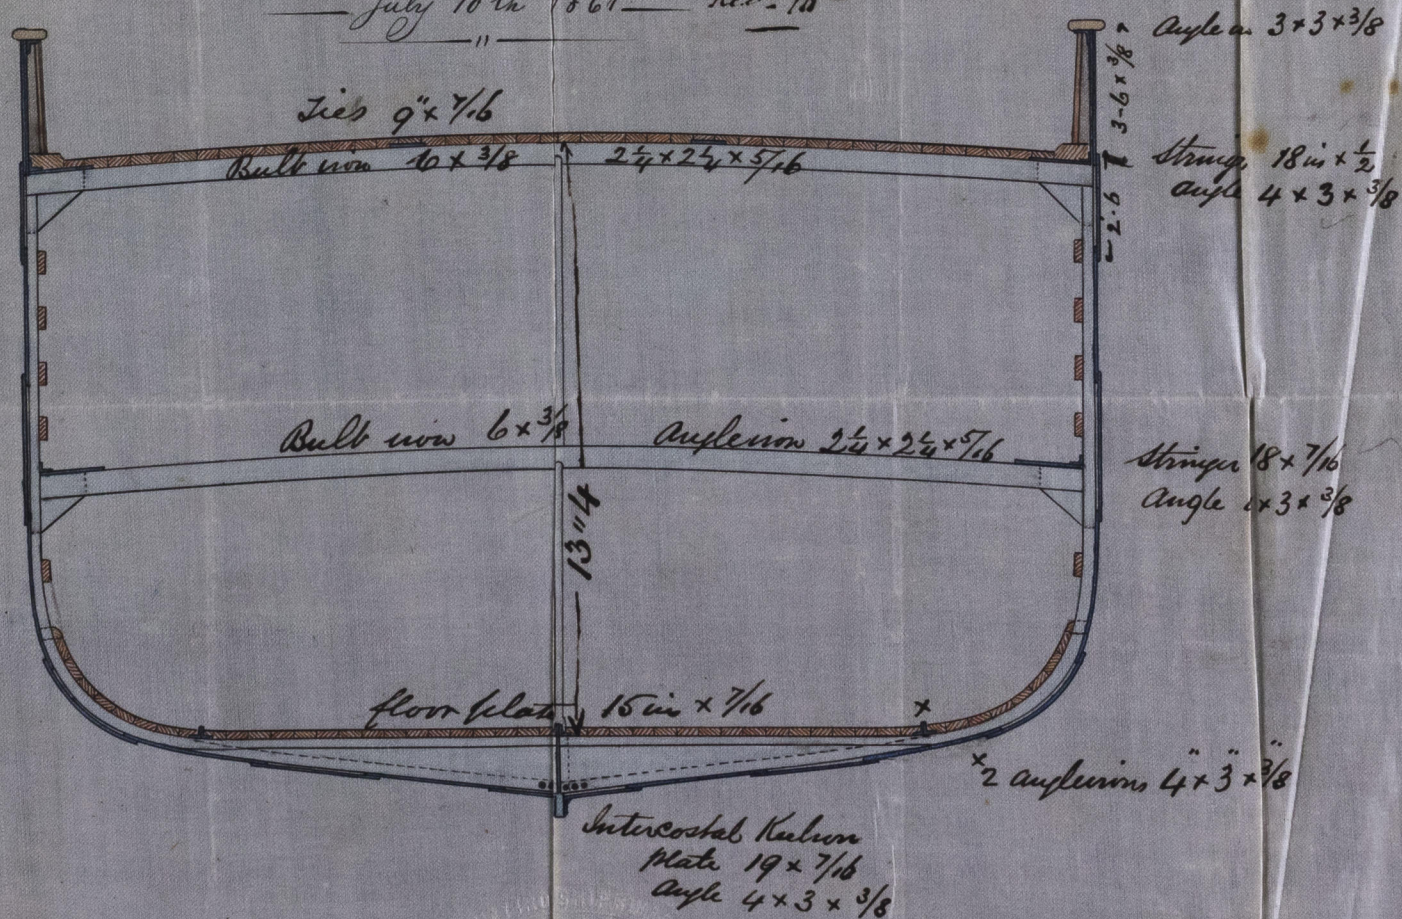 July 10th 186
Angle 3 x 3 x 3/8
3-6 x 3/8
Ties 9" x 7/16
Bulb iron 6 x 3/8 2 1/4 x 2 1/4 x 5/16
Stringer 18 in x 1/2
Angle 4 x 3 x 3/8
2-6
Bulb iron 6 x 3/8 Angle iron 2 1/4 x 2 1/4 x 5/16
Stringer 18 x 7/16
Angle x 3 x 3/8
13"4
floor plate 15 in x 7/16 x
x 2 angleirons 4" x 3" x 3/8"
Intercostal Keelson
plate 19 x 7/16
Angle 4 x 3 x 3/8